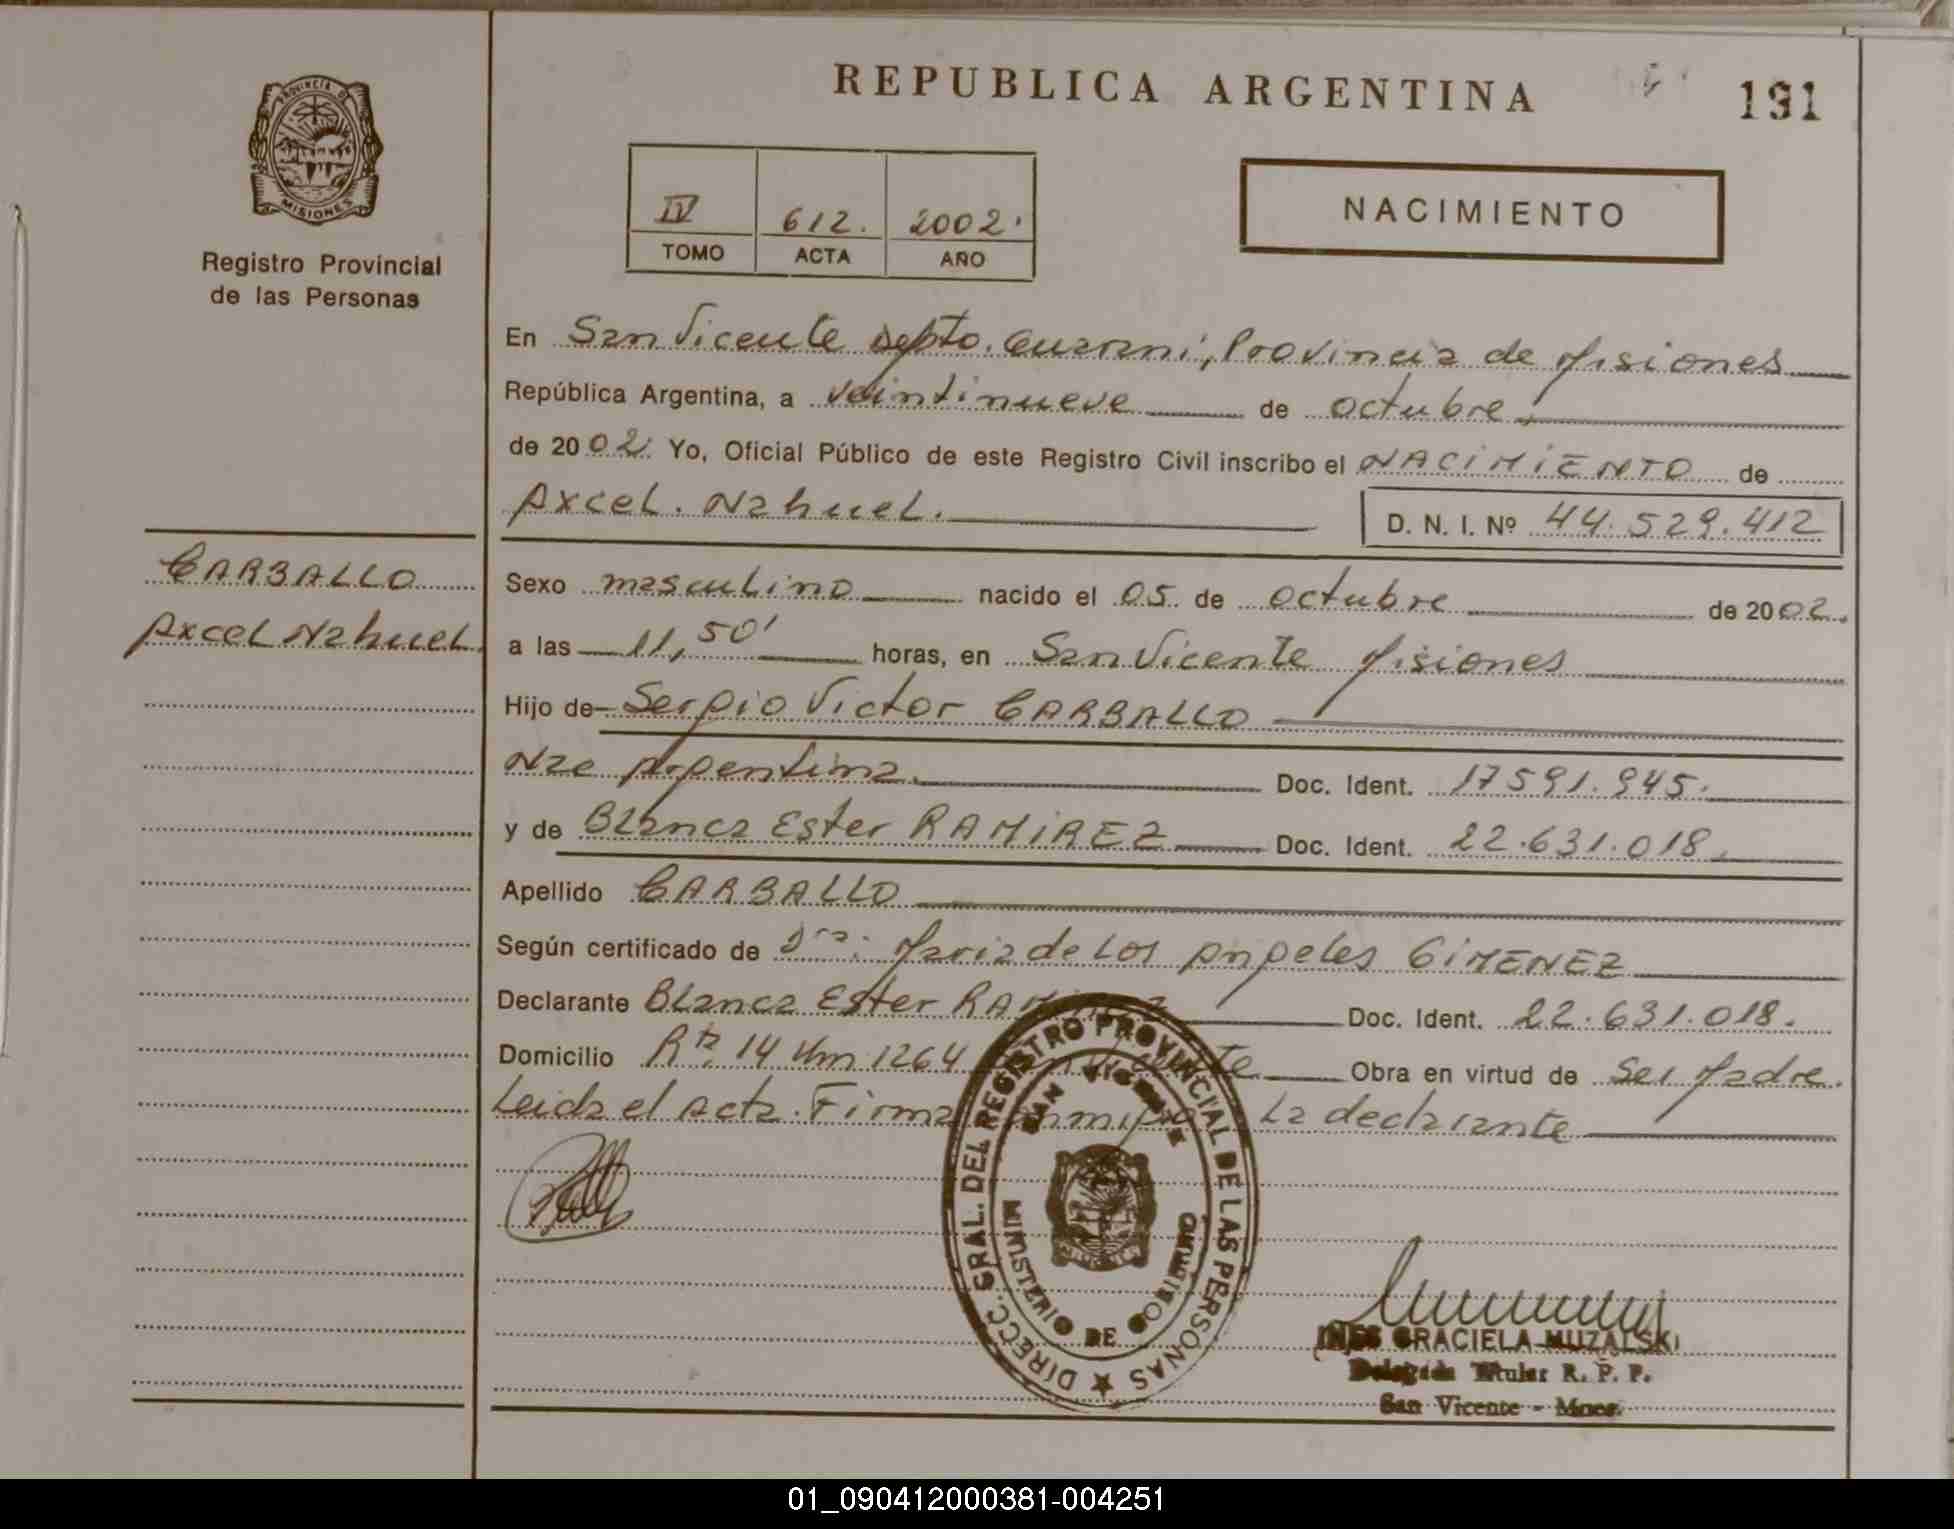 REPUBLICA ARGENTINA
191
PROVINCIA DE
MISIONES
Registro Provincial
de las Personas
IV 612. 2002.
TOMO ACTA AÑO
NACIMIENTO
En San Vicente Depto. Guarani, Provincia de Misiones
República Argentina, a veintinueve de octubre,
de 2002. Yo, Oficial Público de este Registro Civil inscribo el NACIMIENTO de
Axcel. Nahuel.
D. N. I. Nº 44.529.412
CARBALLO
Axcel Nahuel.
Sexo masculino nacido el 05. de octubre de 2002.
a las 11,50' horas, en San Vicente Misiones
Hijo de Sergio Victor CARBALLO
Nac Argentina. Doc. Ident. 17591.945.
y de Blanca Ester RAMIREZ Doc. Ident. 22.631.018.
Apellido CARBALLO
Según certificado de Dra. Maria de Los Angeles GIMENEZ
Declarante Blanca Ester RAMIREZ Doc. Ident. 22.631.018.
Domicilio Rta. 14 Km 1264 San Vicente Obra en virtud de Ser Madre.
Leida el Acta. Firma conmigo La declarante
DIRECC. GRAL. DEL REGISTRO PROVINCIAL DE LAS PERSONAS
SAN VICENTE
MINISTERIO DE GOBIERNO
INES GRACIELA MUZALSKI
Delegada Titular R. P. P.
San Vicente - Mnes.
01_090412000381-004251